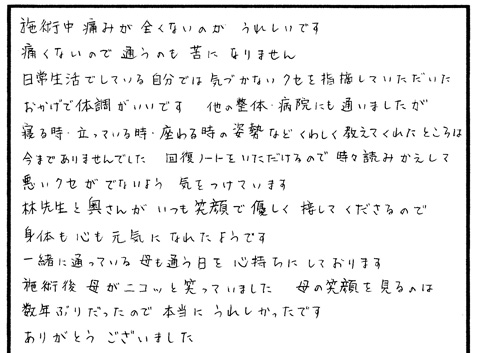 施術中 痛みが 全くないのが うれしいです
痛くないので 通うのも 苦に なりません
日常生活でしている自分では気づかないクセを指摘していただいた
おかげで体調がいいです 他の整体・病院にも通いましたが
寝る時・立っている時・座わる時の姿勢などくわしく教えてくれたところは
今までありませんでした 回復ノートをいただけるので 時々読みかえして
悪いクセがでないよう 気をつけています
林先生と奥さんがいつも笑顔で優しく接してくださるので
身体も心も元気になれたようです
一緒に通っている母も通う日を心待ちにしております
施術後 母がニコッと笑っていました 母の笑顔を見るのは
数年ぶりだったので本当にうれしかったです
ありがとう ございました